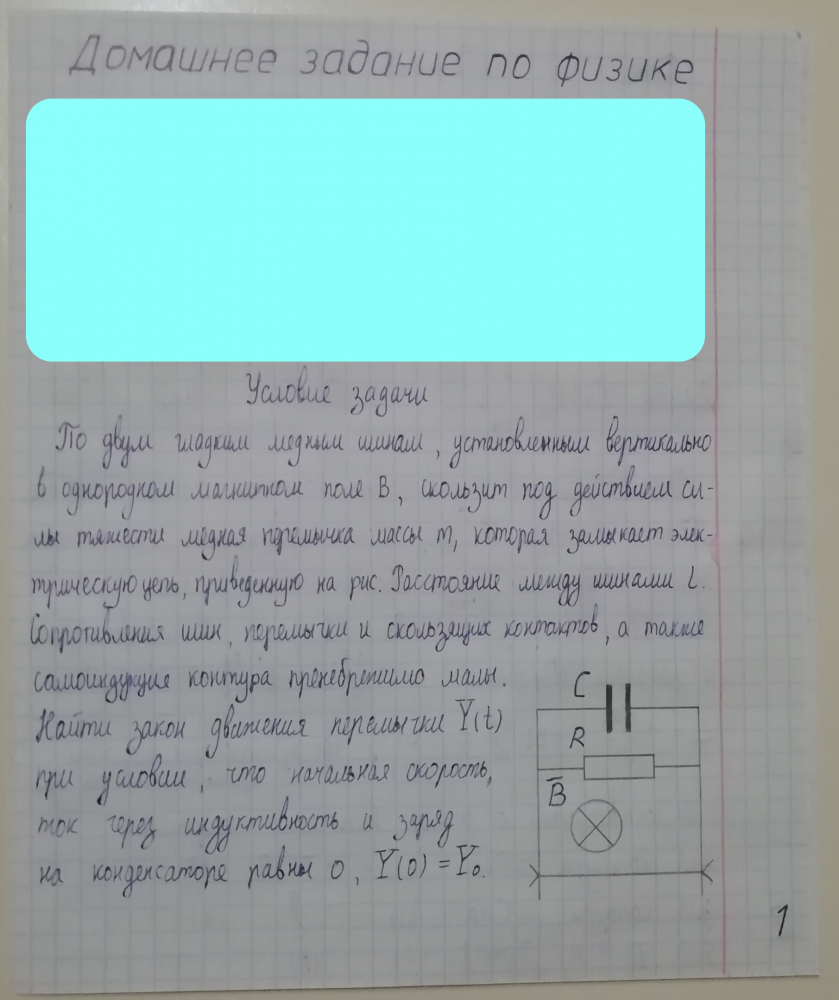 Домашнее задание по физике
Условие задачи
По двум гладким медным шинам, установленным вертикально
в однородном магнитном поле B, скользит под действием си-
лы тяжести медная перемычка массы m, которая замыкает элек-
трическую цепь, приведенную на рис. Расстояние между шинами L.
Сопротивления шин, перемычки и скользящих контактов, а также
самоиндукция контура пренебрежимо малы.
Найти закон движения перемычки Y(t)
при условии, что начальная скорость,
ток через индуктивность и заряд
на конденсаторе равны 0, Y(0) = Y₀.
C
R
B
1